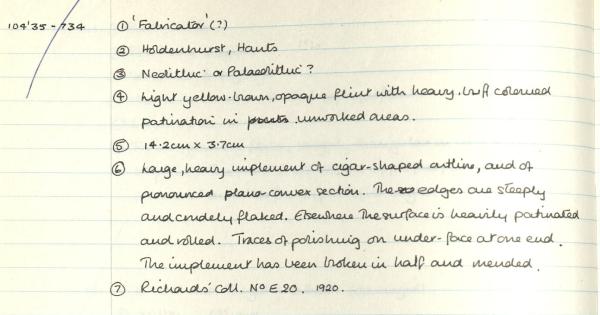 104'35 - 734 ① 'Fabricator' (?)
② Holdenhurst, Hants
③ Neolithic or Palaeolithic?
④ Light yellow-brown, opaque flint with heavy, buff coloured
patination in unworked areas.
⑤ 14.2cm x 3.7cm
⑥ Large, heavy implement of cigar-shaped outline, and of
pronounced plano-convex section. The edges are steeply
and crudely flaked. Elsewhere the surface is heavily patinated
and rolled. Traces of polishing on under-face at one end.
The implement has been broken in half and mended.
⑦ Richards' Coll. No E 20. 1920.